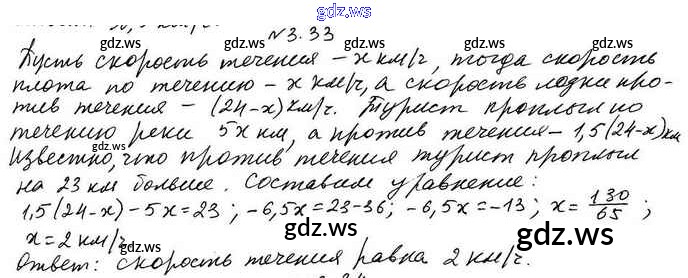 gdz.ws
№3.33
gdz.ws gdz.ws gdz.ws
Пусть скорость течения – x км/ч, тогда скорость
плота по течению – x км/ч, а скорость лодки про-
тив течения – (24-x) км/ч. Турист проплыл по
gdz.ws gdz.ws gdz.ws
течению реки 5x км, а против течения – 1,5(24-x) км
Известно, что против течения турист проплыл
на 23 км больше. Составим уравнение:
gdz.ws gdz.ws gdz.ws
1,5(24-x)-5x=23; -6,5x=23-36; -6,5x=-13; x=130/65;
x=2 км/ч
Ответ: скорость течения равна 2 км/ч.
gdz.ws gdz.ws gdz.ws